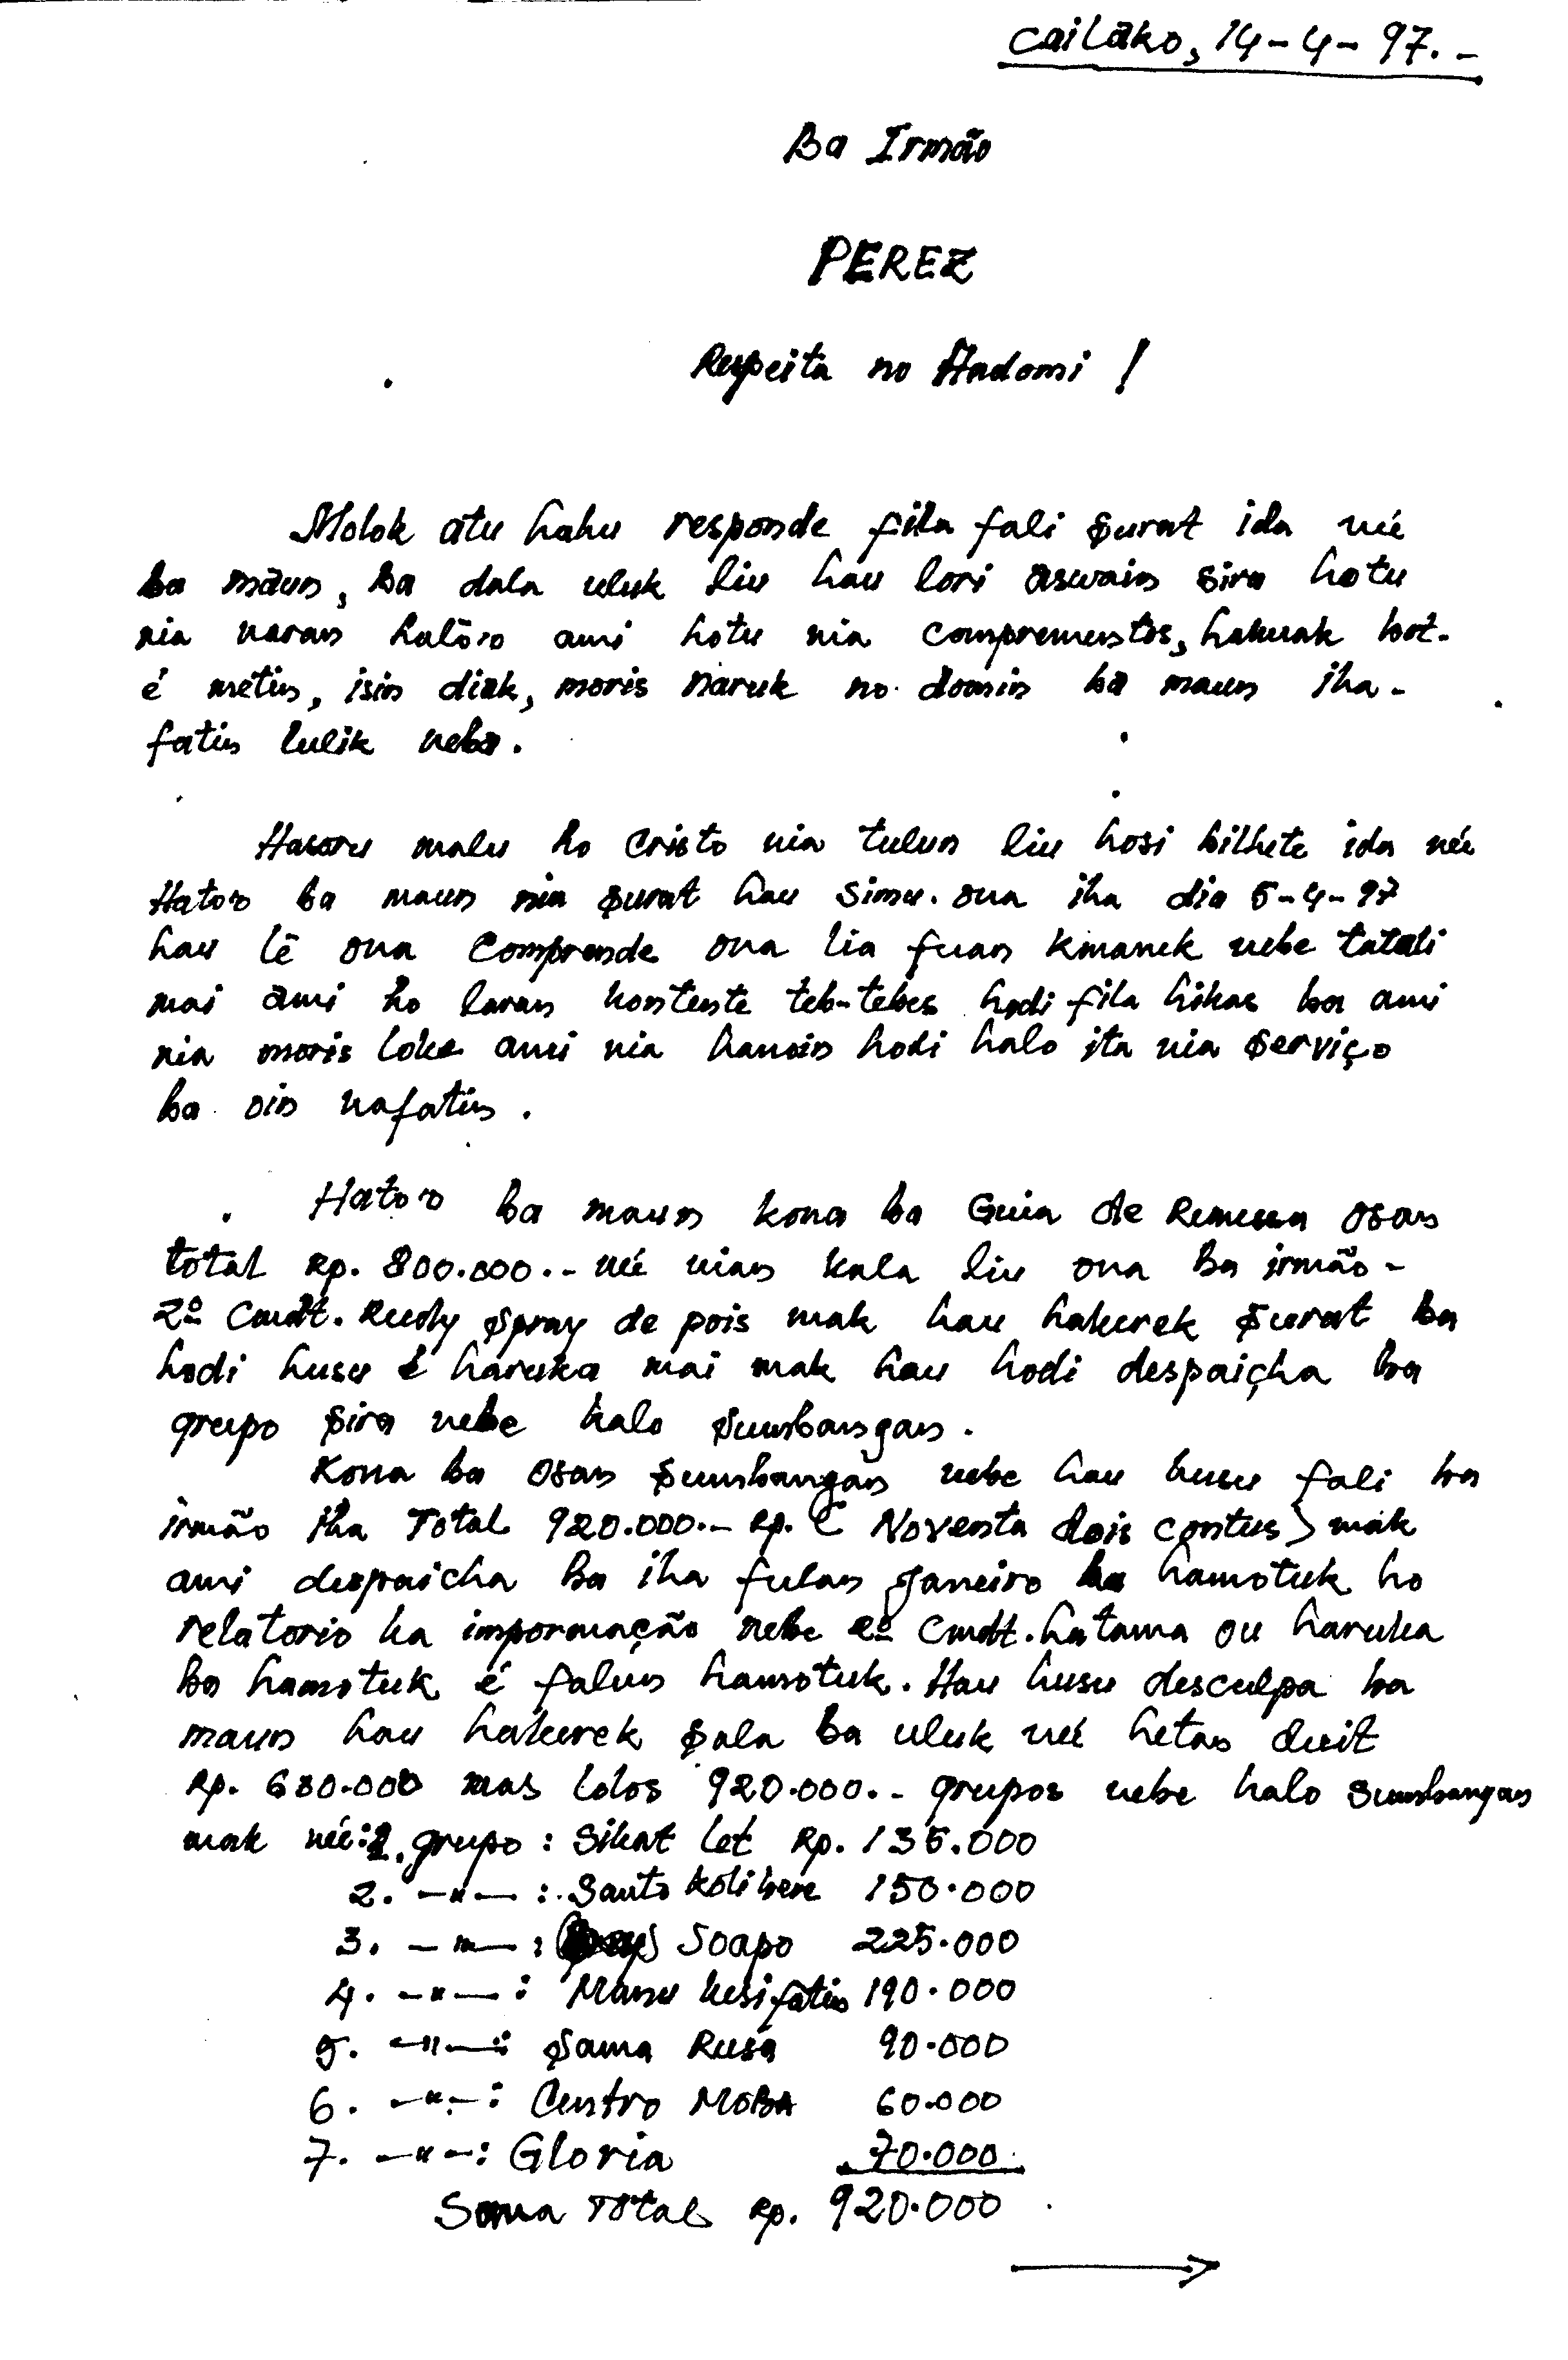 Cailāko, 14-4-97.-
Ba Irmão
PEREZ
Respeita no Hadomi !
Molok atu hahu responde fila fali surat ida né
ba māun, ba dala uluk liu hau lori aswain sira hotu
nia naran halo'o ami hotu nia comprementos, hakuak bot-
é métin, isin diak, moris naruk no domin ba maun iha-
fatin lulik neba.
Hasoru malu ho Cristo nia tulun liu hosi bilhete ida né
Hato'o ba maun nia surat hau simu. ona iha dia 5-4-97
hau lē ona Comprende ona lia fuan kmanek nebe tatoli
mai ami ho laran kontente teb-tebes hodi fila hikas ba ami
nia moris loke ami nia hanoin hodi halo ita nia serviço
ba oin nafatin.
Hato'o ba maun kona ba Guia de Remessa osan
total Rp. 800.000.- né nian kala liu ona ba irmão-
2º Cmdt. Rudy Spray de pois mak hau hakerek surat ba
hodi husu é haruka mai mak hau hodi despaiçha ba
grupo sira nebe halo sumbangan.
Kona ba osan sumbangan nebe hau husu fali ba
irmão iha Total 920.000.- Rp. ( Noventa dois contus ) mak
ami despaicha ba iha fulan Janeiro hamotuk ho
relatorio ka impormação nebe 2º Cmdt. hatama ou haruka
ba hamotuk é falun hamotuk. Hau husu desculpa ba
maun hau hakerek sala ba uluk né hetan duit
Rp. 680.000 mas lolos 920.000.- grupos nebe halo sumbangan
mak né: 1. grupo : Sikat let Rp. 135.000
2. -"- : Santo kolibere 150.000
3. -"- : Soapo 225.000
4. -"- : Manu kesi fatin 190.000
5. -"- : Sama Rusa 90.000
6. -"- : Centro MOBA 60.000
7. -"- : Gloria 70.000
Soma Total Rp. 920.000